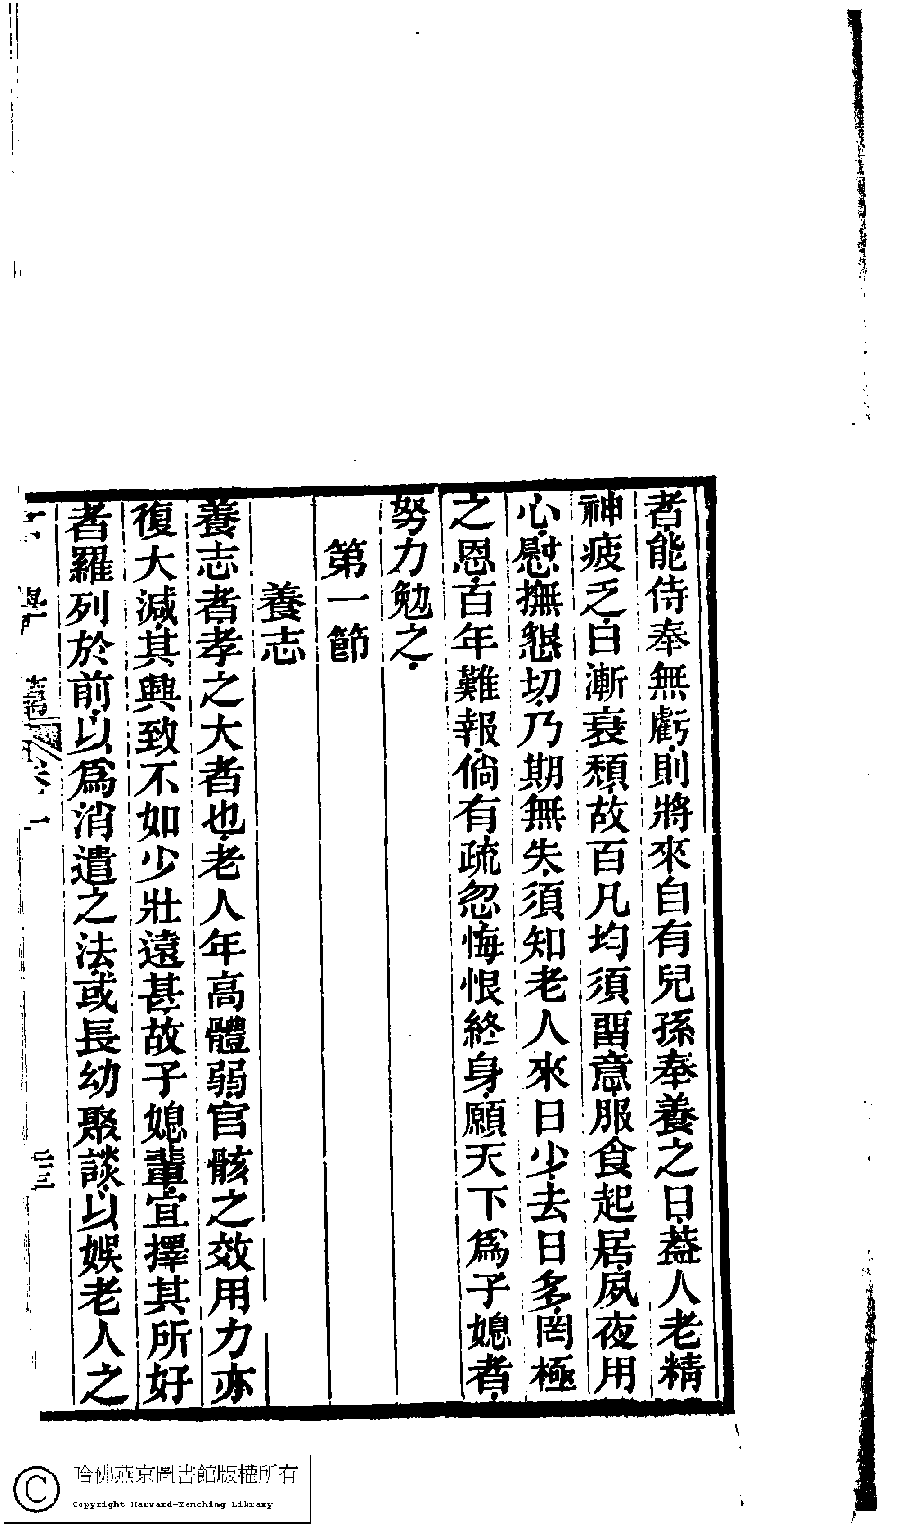 者能侍奉無虧則將來自有兒孫奉養之日葢人老精
神疲乏日漸衰頹故百凡均須畱意服食起居夙夜用
心慰撫懇切乃期無失須知老人來日少去日多罔極
之恩百年難報倘有疏忽悔恨終身願天下爲子媳者
努力勉之
第一節
養志
養志者孝之大者也老人年高體弱官骸之效用力亦
復大減其興致不如少壯遠甚故子媳輩宜擇其所好
者羅列於前以爲消遣之法或長幼聚談以娛老人之
卷一
哈佛燕京圖書館版權所有
Copyright Harvard-Yenching Library